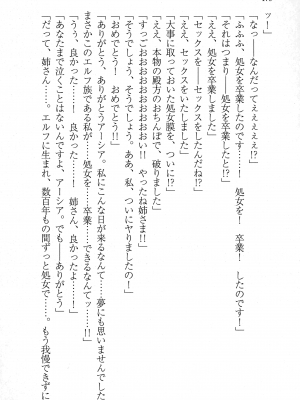 ッ！」
「なっ――なんだってえぇぇぇぇ!?」
「ふふふ、処女を卒業したのです……！　処女を！　卒業！　したのです！」
「それはつまり――処女を卒業したと!?」
「ええ、処女を卒業しました」
「セックスを――セックスをしたんだね!?」
「ええ、セックスをいたしました」
「大事に取っておいた処女膜を、ついに!?」
「ええ、本物の殿方のおちんぽで、破りました」
「すっごおおおおおおい!!　やったね姉さま!!」
「そうでしょう、そうでしょう。ああ、私、ついにヤりましたの！」
「おめでとう！　おめでとう！」
「ありがとう、ありがとうアーシア。私にこんな日が来るなんて……夢にも思いませんでした
まさかこのエルフ族である私が……処女を……卒業……できるなんてッ……!!」
「うぅ、良かった……！　姉さん、良かったよ……！」
「あなたまで泣くことはないんですよ、アーシア。でも――ありがとう」
「だって、姉さん……。エルフに生まれ、数百年もの間ずっと処女で……。もう我慢できずに